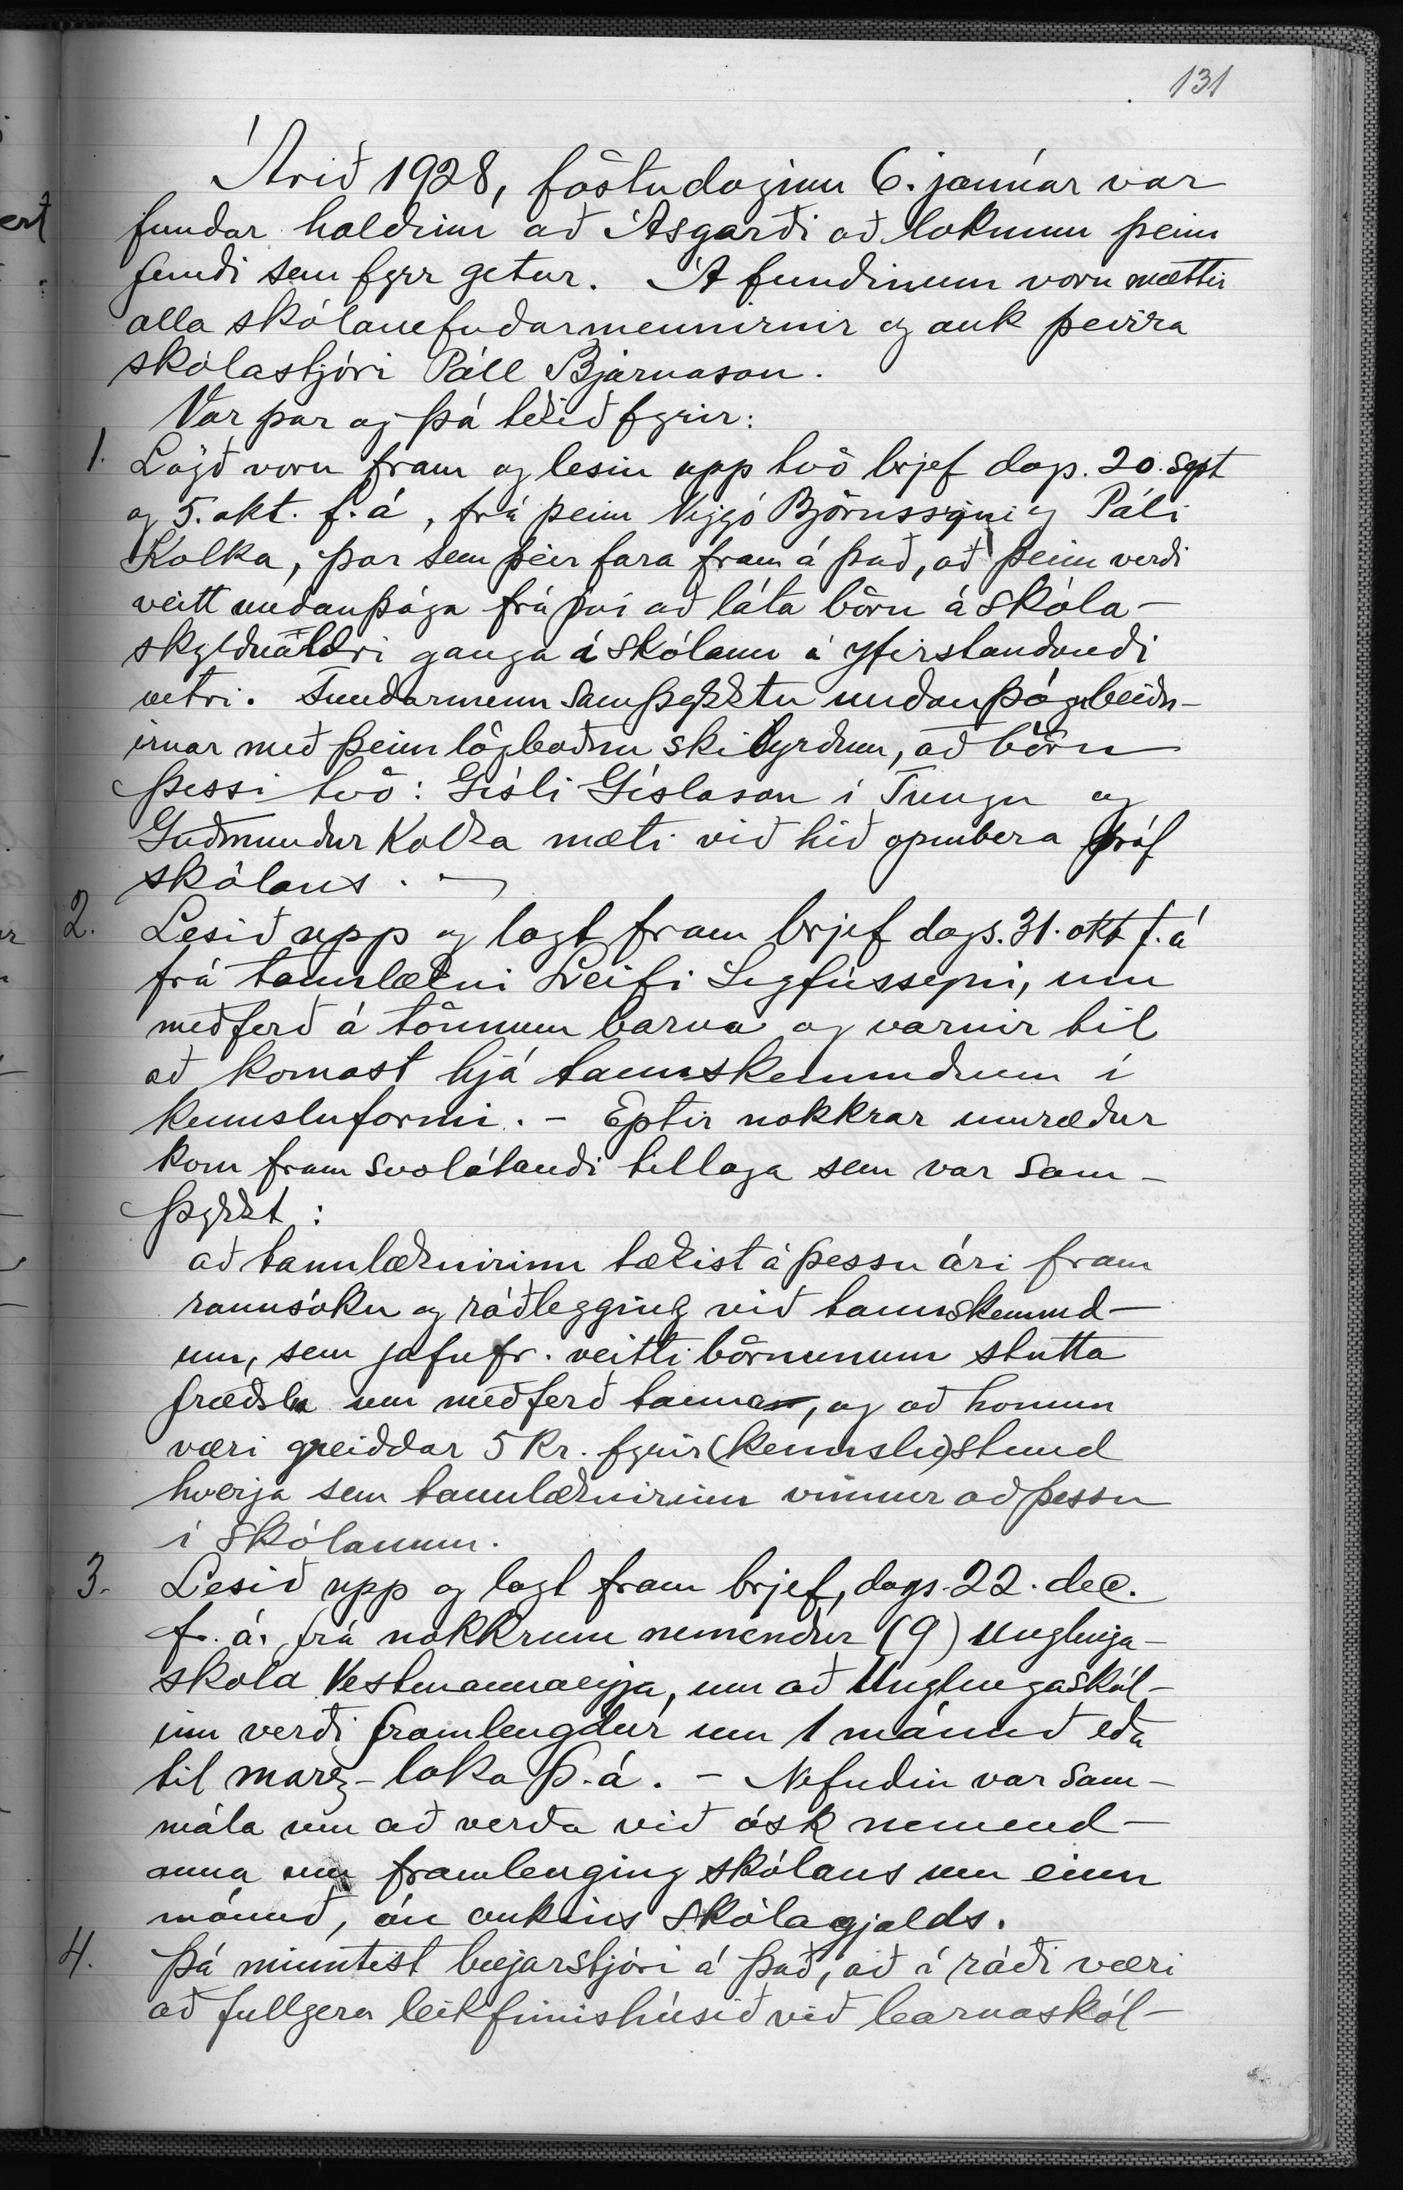 131
Árið 1928, föstudaginn 6. janúar var
fundur haldinn að Ásgarði að loknum þeim
fundi sem fyrr getur. Á fundinum voru mættir
alla skólanefndarmennirnir og auk þeirra
skólastjóri Páll Bjarnason.
Var þar og þá tekið fyrir:
1. Lögð voru fram og lesin upp tvö brjef dags. 20. sept
og 5. okt. f. á, frá þeim Viggó Björnssyni og Páli
Kolka, þar sem þeir fara fram á það, að þeim verði
veitt undanþága frá því að láta börn á skóla-
skylduáldri ganga í skólann á yfirstandandi
vetri. Fundarmenn samþykktu undanþágubeiðn-
irnar með þeim lögboðnu skilyrðum, að börn
þessi tvö: Gísli Gíslason í Tungu og
Guðmundur Kolka mæti við hið opinbera próf
skólans. -
2. Lesið upp og lagt fram brjef dags. 31. okt f. á
frá tannlækni Leifi Sigfússyni, um
meðferð á tönnum barna og varnir til
að komast hjá tannskemmdum í
kennsluformi. - Eptir nokkrar umræður
kom fram svolátandi tillaga sem var sam-
þykkt:
að tannlæknirinn tækist á þessu ári fram
rannsókn og ráðlegging við tannskemmd-
um, sem jafnfr. veitti börnunum stutta
fræðslu um meðferð tanna, og að honum
væri greiddar 5 kr. fyrir (kennslu)stund
hverja sem tannlæknirinn vinnur að þessu
í skólanum.
3. Lesið upp og lagt fram brjef, dags. 22. dec.
f. á. frá nokkrum nemendur (9) Unglinga-
skóla Vestmannaeyja, um að Unglingaskól-
inn verði framlengdur um 1 mánuð eða
til marz-loka þ. á. - Nefndin var sam-
mála um að verða við ósk nemend-
anna um framlenging skólans um einn
mánuð, án aukins skólagjalds.
4. Þá minntist bæjarstjóri á það, að í ráði væri
að fullgera leikfimishúsið við barnaskól-